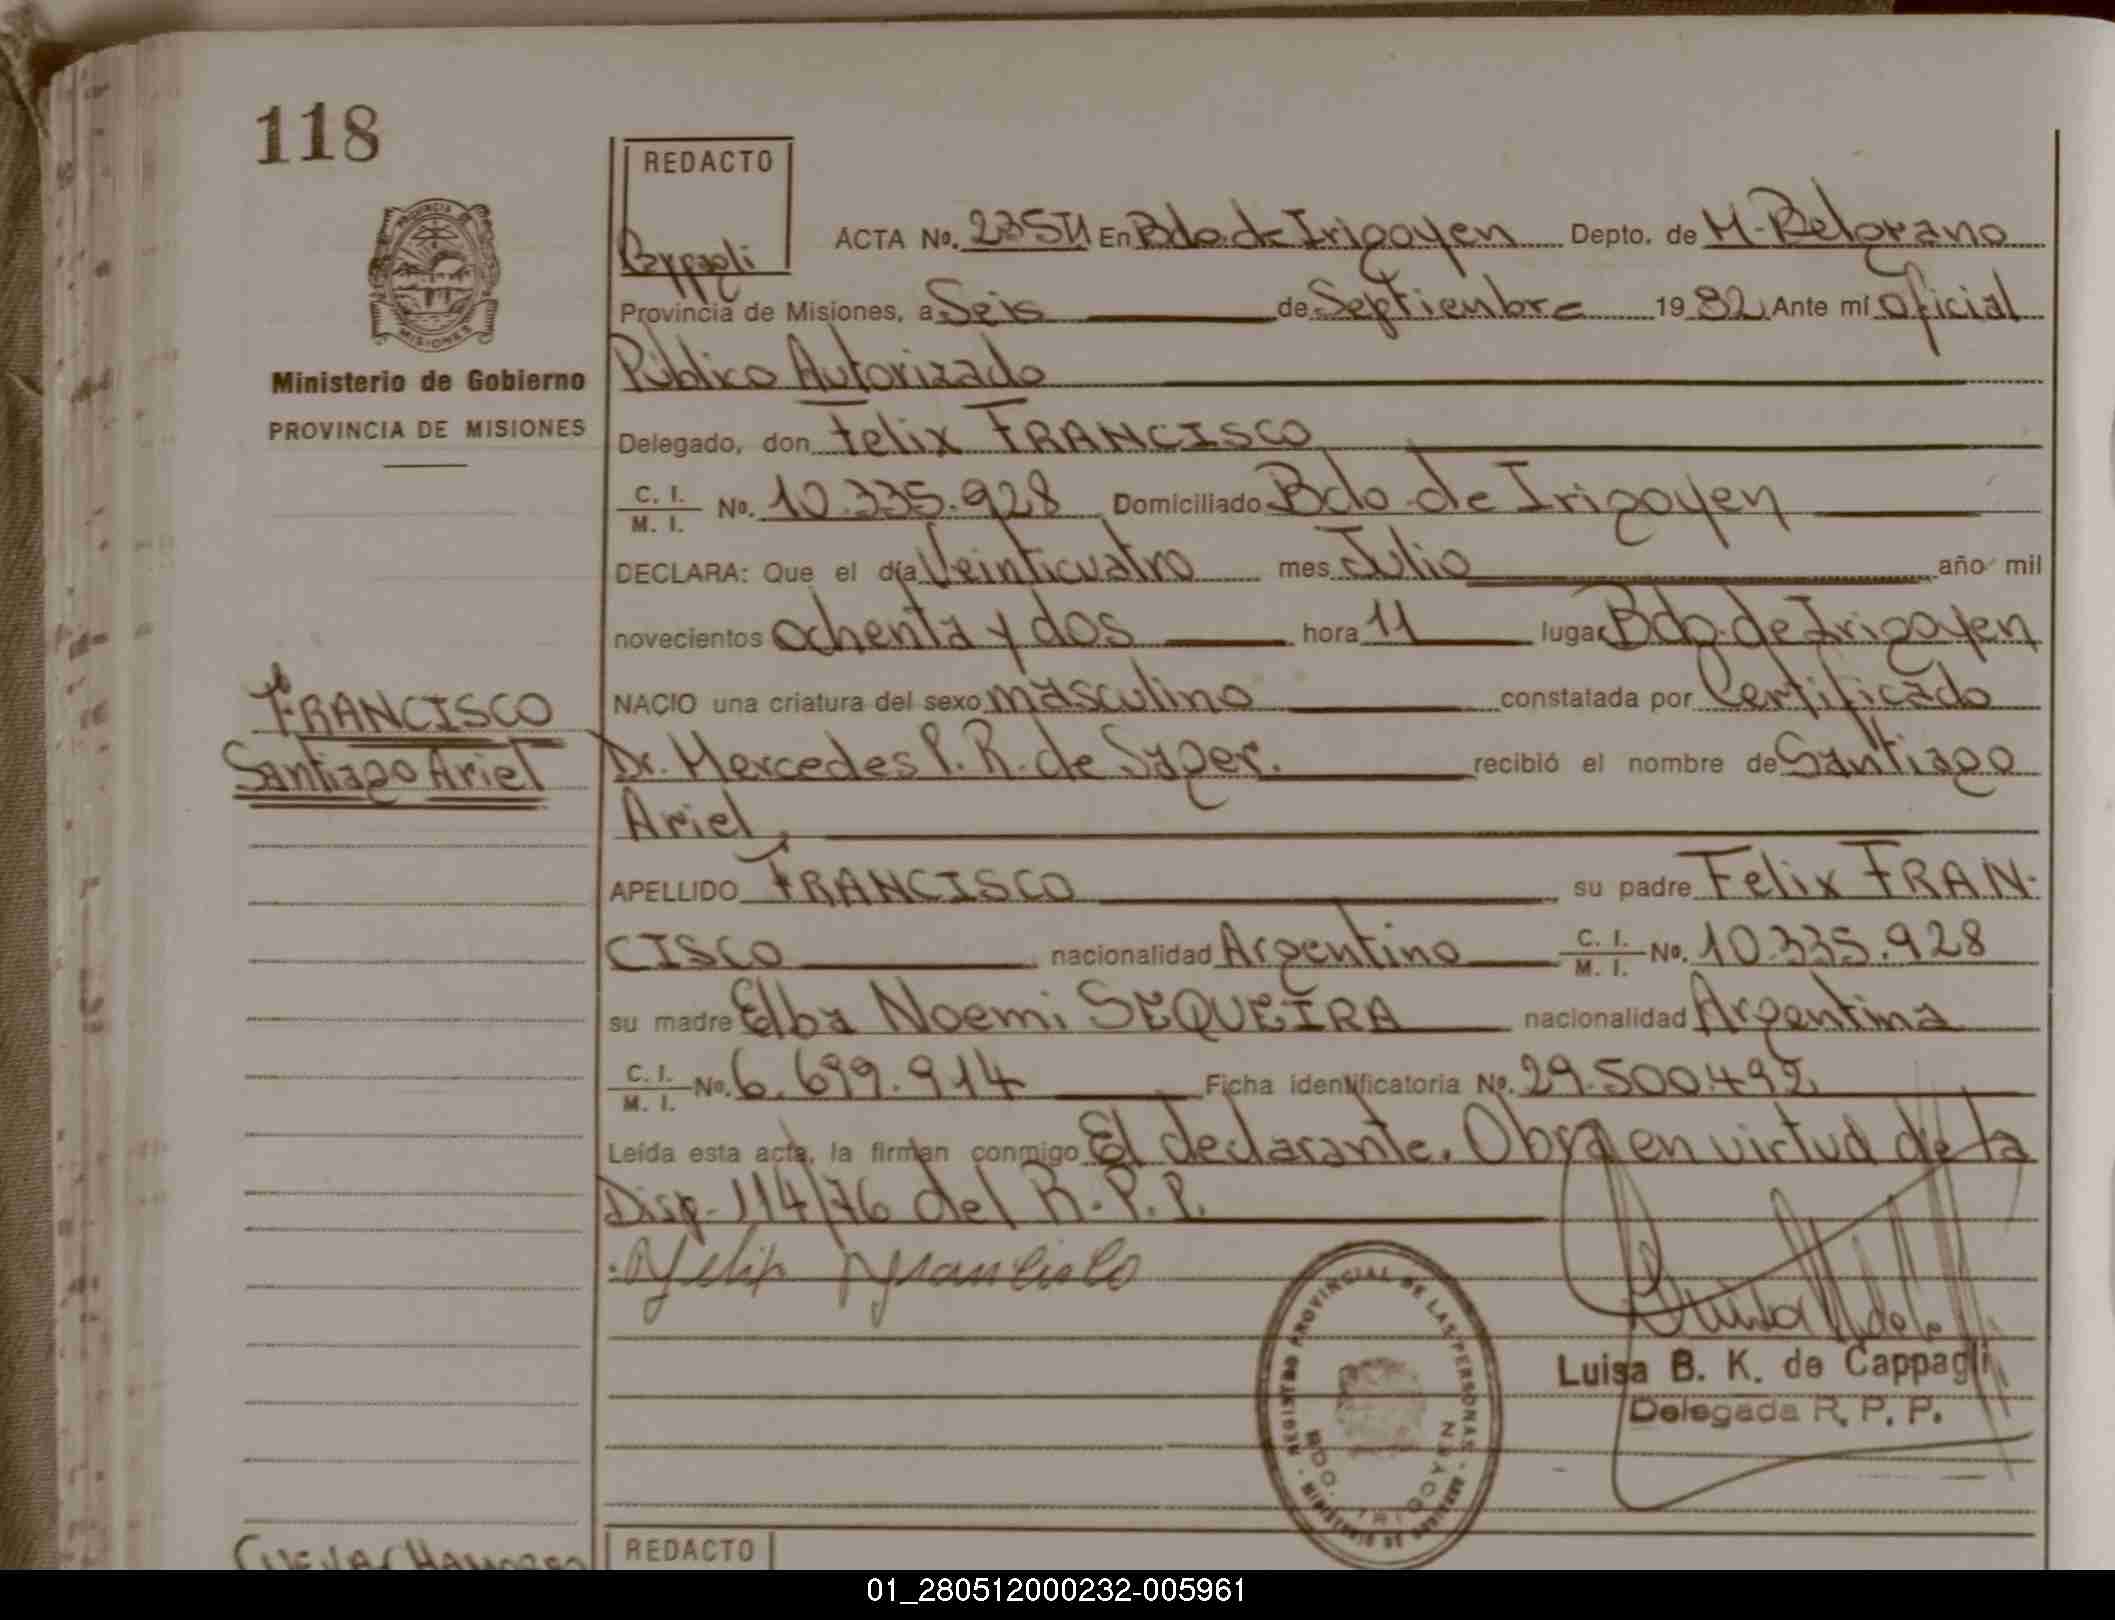 118
REDACTO
Cappagli
PROVINCIA DE
MISIONES
Ministerio de Gobierno
PROVINCIA DE MISIONES
ACTA No. En Bdo. de Irigoyen Depto. de M. Belgrano
Provincia de Misiones, a Seis de Septiembre 1982 Ante mí Oficial
Público Autorizado
Delegado, don Felix FRANCISCO
C. I. / M. I. No. 10.335.928 Domiciliado Bdo de Irigoyen
DECLARA: Que el día Veinticuatro mes Julio año mil
novecientos ochenta y dos hora 11 lugar Bdo. de Irigoyen
NACIO una criatura del sexo masculino constatada por Certificado
Dr. Mercedes P. R. de Sager. recibió el nombre de Santiago
Ariel,
FRANCISCO
Santiago Ariel
APELLIDO FRANCISCO su padre Felix FRAN-
CISCO nacionalidad Argentino C. I. / M. I. No. 10.335.928
su madre Elba Noemi SEQUEIRA nacionalidad Argentina
C. I. / M. I. No. 6.699.914 Ficha identificatoria No. 29.500.492
Leída esta acta, la firman conmigo El declarante. Obra en virtud de la
Disp. 114/76 del R. P. P.
Felix Francisco
REGISTRO PROVINCIAL DE LAS PERSONAS - MINISTERIO DE GOBIERNO -
BDO. IRIGOYEN
Luisa B. K. de Cappagli
Delegada R. P. P.
REDACTO
01_280512000232-005961